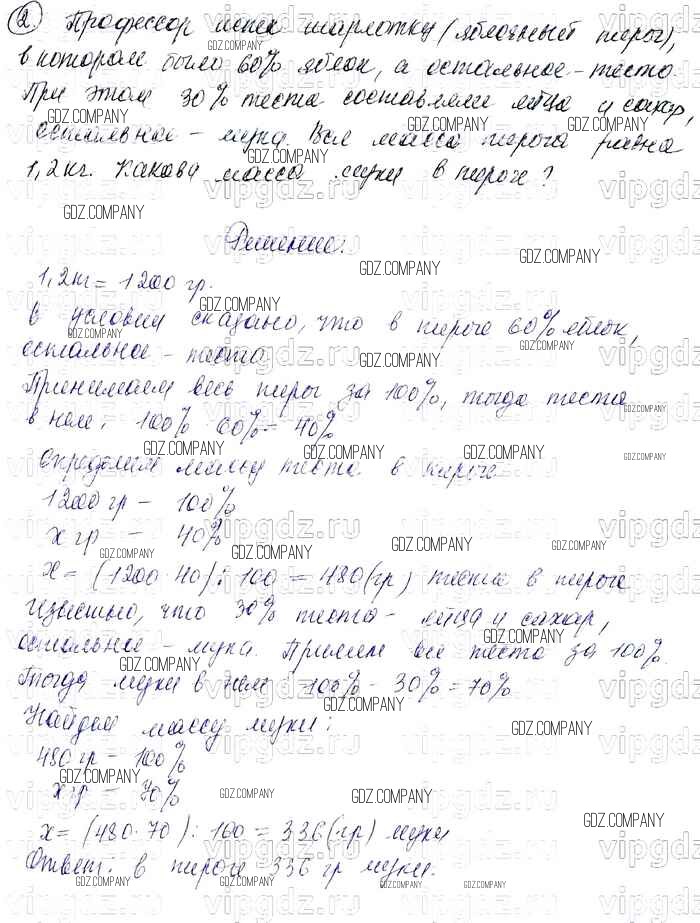 2) Профессор испек шарлотку (яблочный пирог),
в котором было 60% яблок, а остальное - тесто.
При этом 30% теста составляли яйца и сахар,
остальное - мука. Вся масса пирога равна
1,2 кг. Какова масса муки в пироге?
Решение:
1,2 кг = 1200 гр.
В условии сказано, что в пироге 60% яблок,
остальное - тесто.
Принимаем весь пирог за 100%, тогда теста
в нем: 100% - 60% = 40%
Определим массу теста в пироге
1200 гр - 100%
x гр - 40%
x = (1200 · 40) : 100 = 480 (гр) теста в пироге
Известно, что 30% теста - яйца и сахар,
остальное - мука. Примем все тесто за 100%.
Тогда муки в нем 100% - 30% = 70%
Найдем массу муки:
480 гр - 100%
x гр - 70%
x = (480 · 70) : 100 = 336 (гр) муки
Ответ: в пироге 336 гр муки.
GDZ.COMPANY
vipgdz.ru